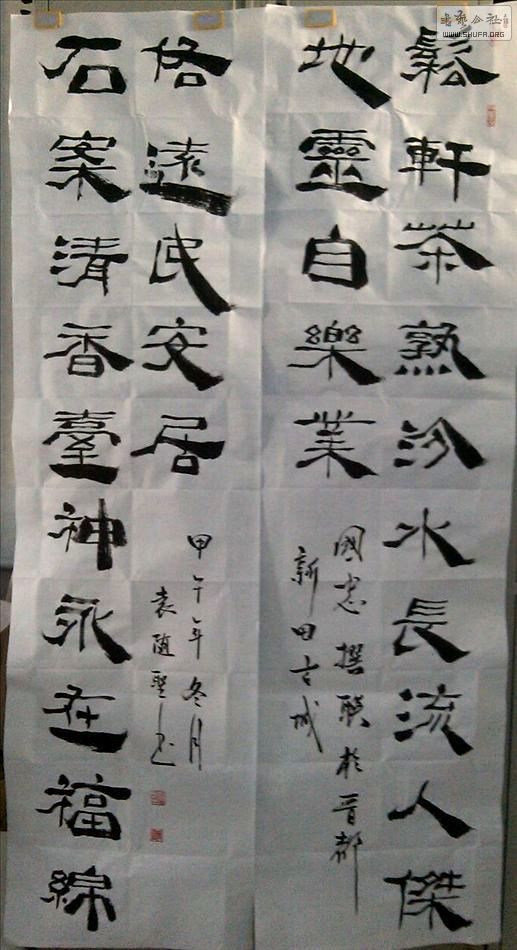 鬆軒茶熟汾水長流人傑
地靈自樂業
國忠撰聯於晉都
新田古城
石案清香臺神永在福綿
遠民安居
甲午年冬月
袁隨聖书
書藝公社
WWW.SHUFA.ORG